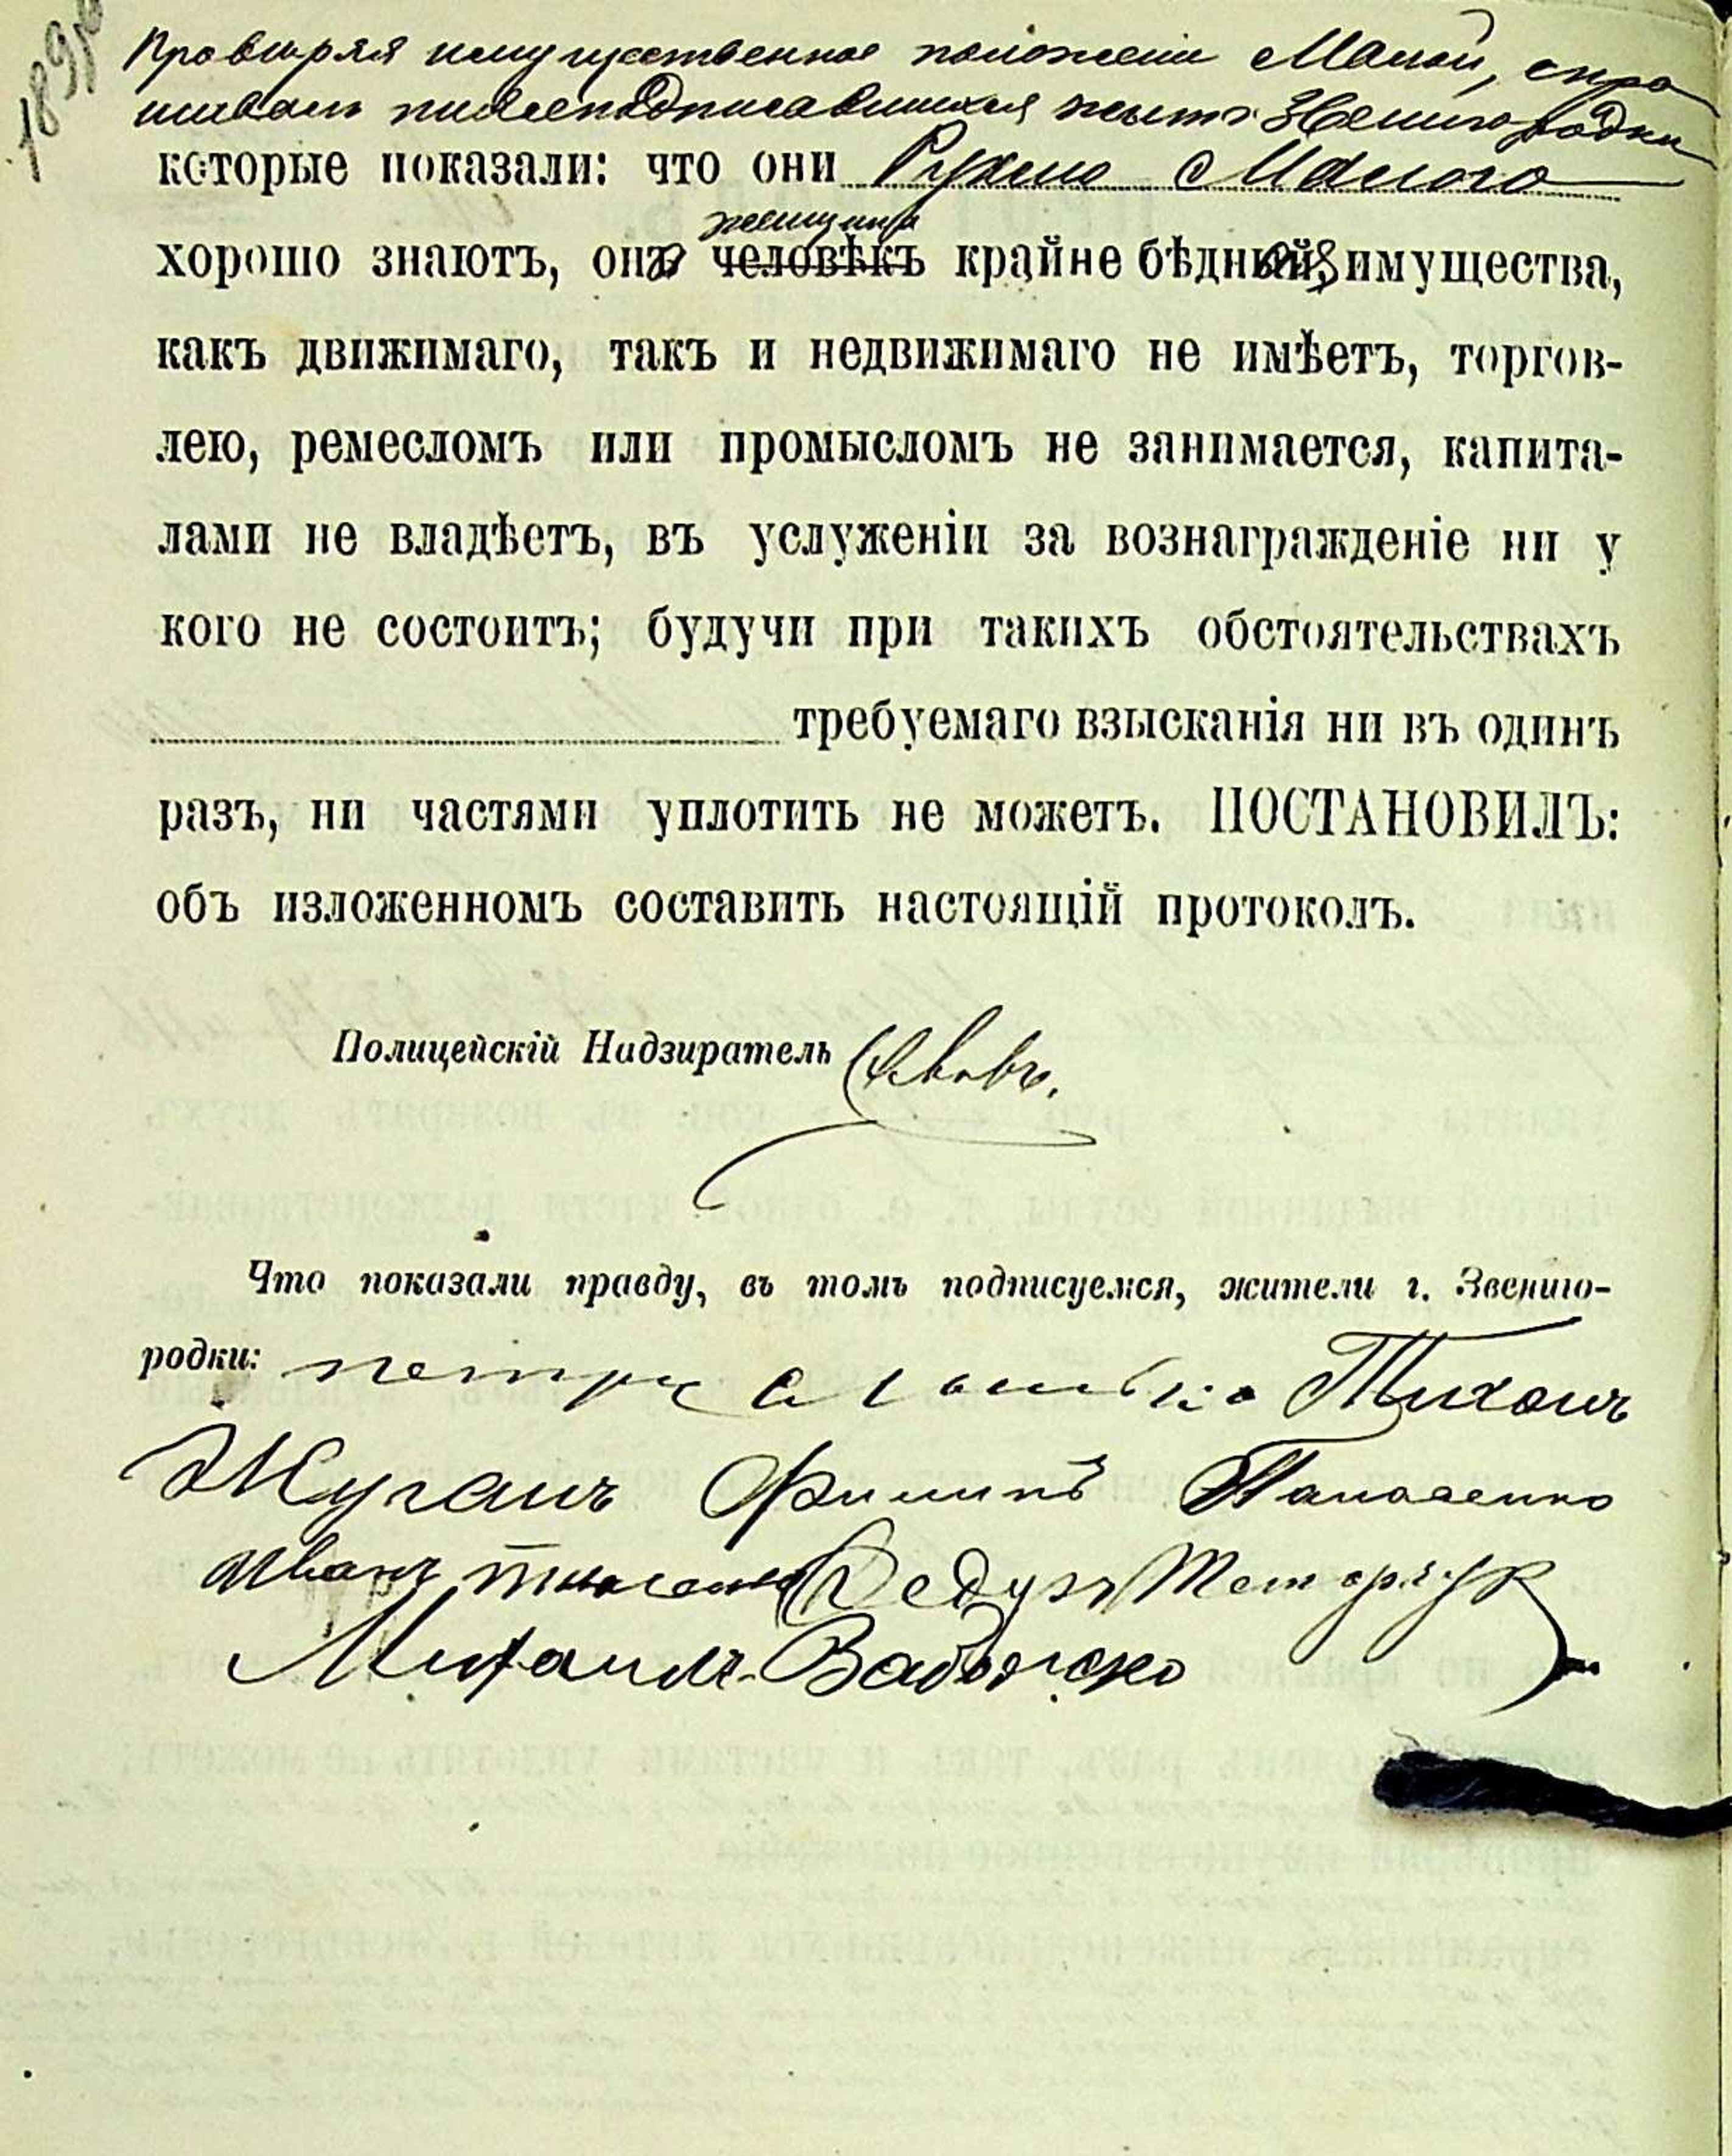 189
Провѣряя имущественное положеніе Малой, спра
шивалъ нижеподписавшихся жит. Звенигородки
которые показали: что они Рухлю Малого
хорошо знаютъ, она женщина
человѣкъ крайне бѣдная имущества,
какъ движимаго, такъ и недвижимаго не имѣетъ, торгов-
лею, ремесломъ или промысломъ не занимается, капита-
лами не владѣетъ, въ услуженіи за вознагражденіе ни у
кого не состоитъ; будучи при такихъ обстоятельствахъ
требуемаго взысканія ни въ одинъ
разъ, ни частями уплотить не можетъ. ПОСТАНОВИЛЪ:
объ изложенномъ составить настоящій протоколъ.
Полицейскій Надзиратель
Что показали правду, въ томъ подписуемся, жители г. Звениго-
родки: петро Тихонъ
Жуганъ Филипъ Панасенко
Иванъ
Михаилъ